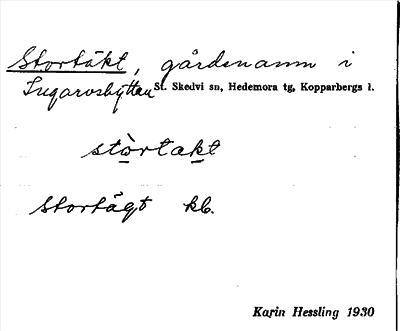 Stortäkt, gårdsnamn i
Ingarvsbyttan St. Skedvi sn, Hedemora tg, Kopparbergs l.
stòrtakt
Stortägt kb.
Karin Hessling 1930